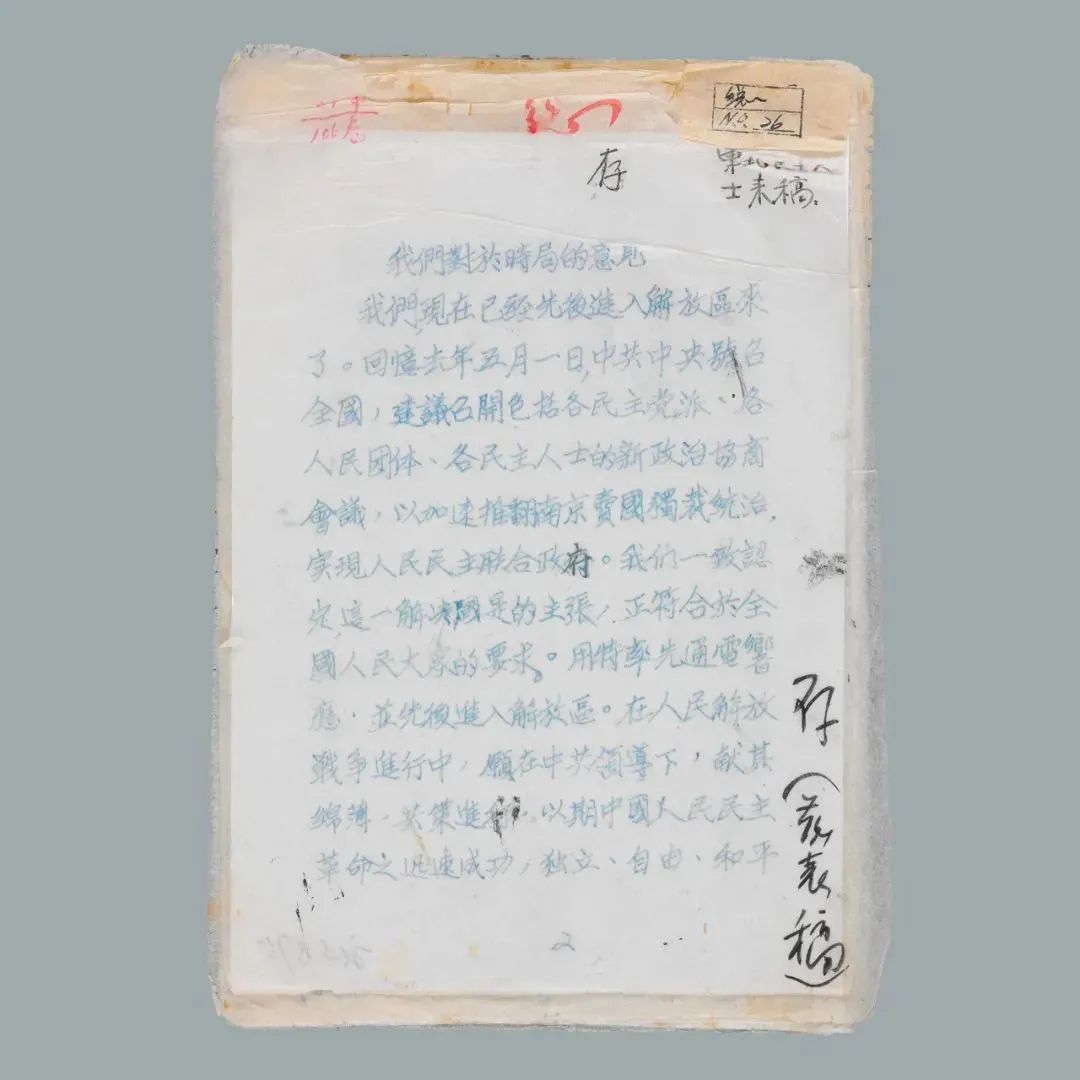 106
统一
统一
NO. 26
存
東北民主人
士来稿.
我們對於時局的意見
我們現在已經先後進入解放區來
了。回憶去年五月一日,中共中央號召
全國,建議召開包括各民主党派、各
人民团体、各民主人士的新政治協商
會議,以加速推翻南京賣國獨裁統治,
实現人民民主联合政府。我们一致認
定這一解决國是的主張,正符合於全
國人民大家的要求。用特率先通電響
應,並先後進入解放區。在人民解放
戰争進行中,願在中共領導下,献其
綿薄,共策進行,以期中國人民民主
革命之迅速成功,独立、自由、和平
2
存(发表稿)